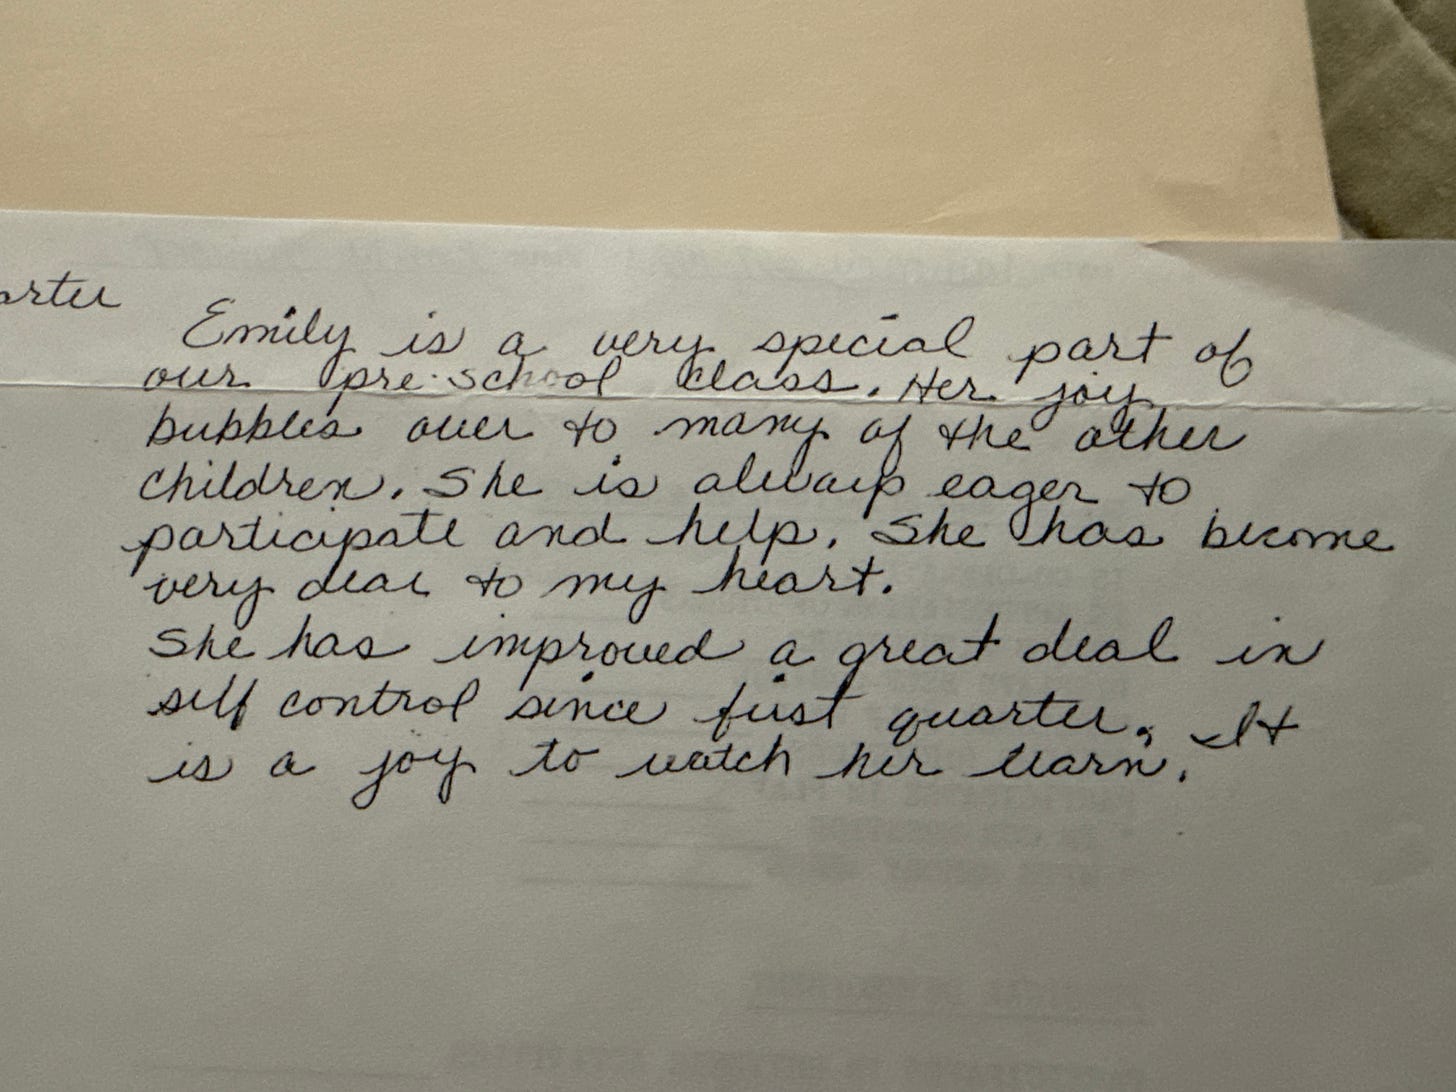 Emily is a very special part of
our pre-school class. Her joy
bubbles over to many of the other
children. She is always eager to
participate and help. She has become
very dear to my heart.
She has improved a great deal in
self control since first quarter. It
is a joy to watch her learn.